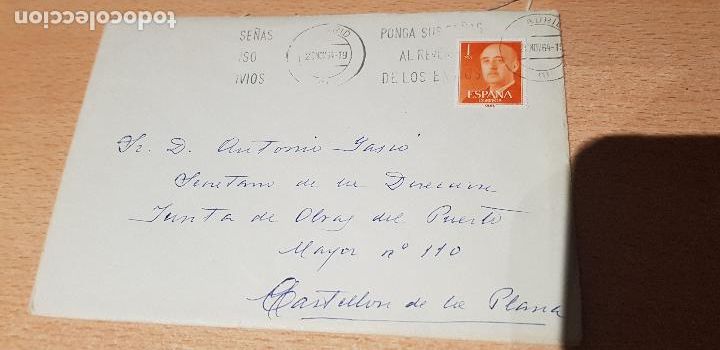 todocoleccion.net
SEÑAS
PONGA SUS SEÑAS
AL REVERSO
DE LOS ENVIOS
1
ESPAÑA
CORREOS
Sr. D. Antonio Gasió
Secretario de la Direccion
Junta de Obras del Puerto
Mayor nº 110
Castellon de la Plana